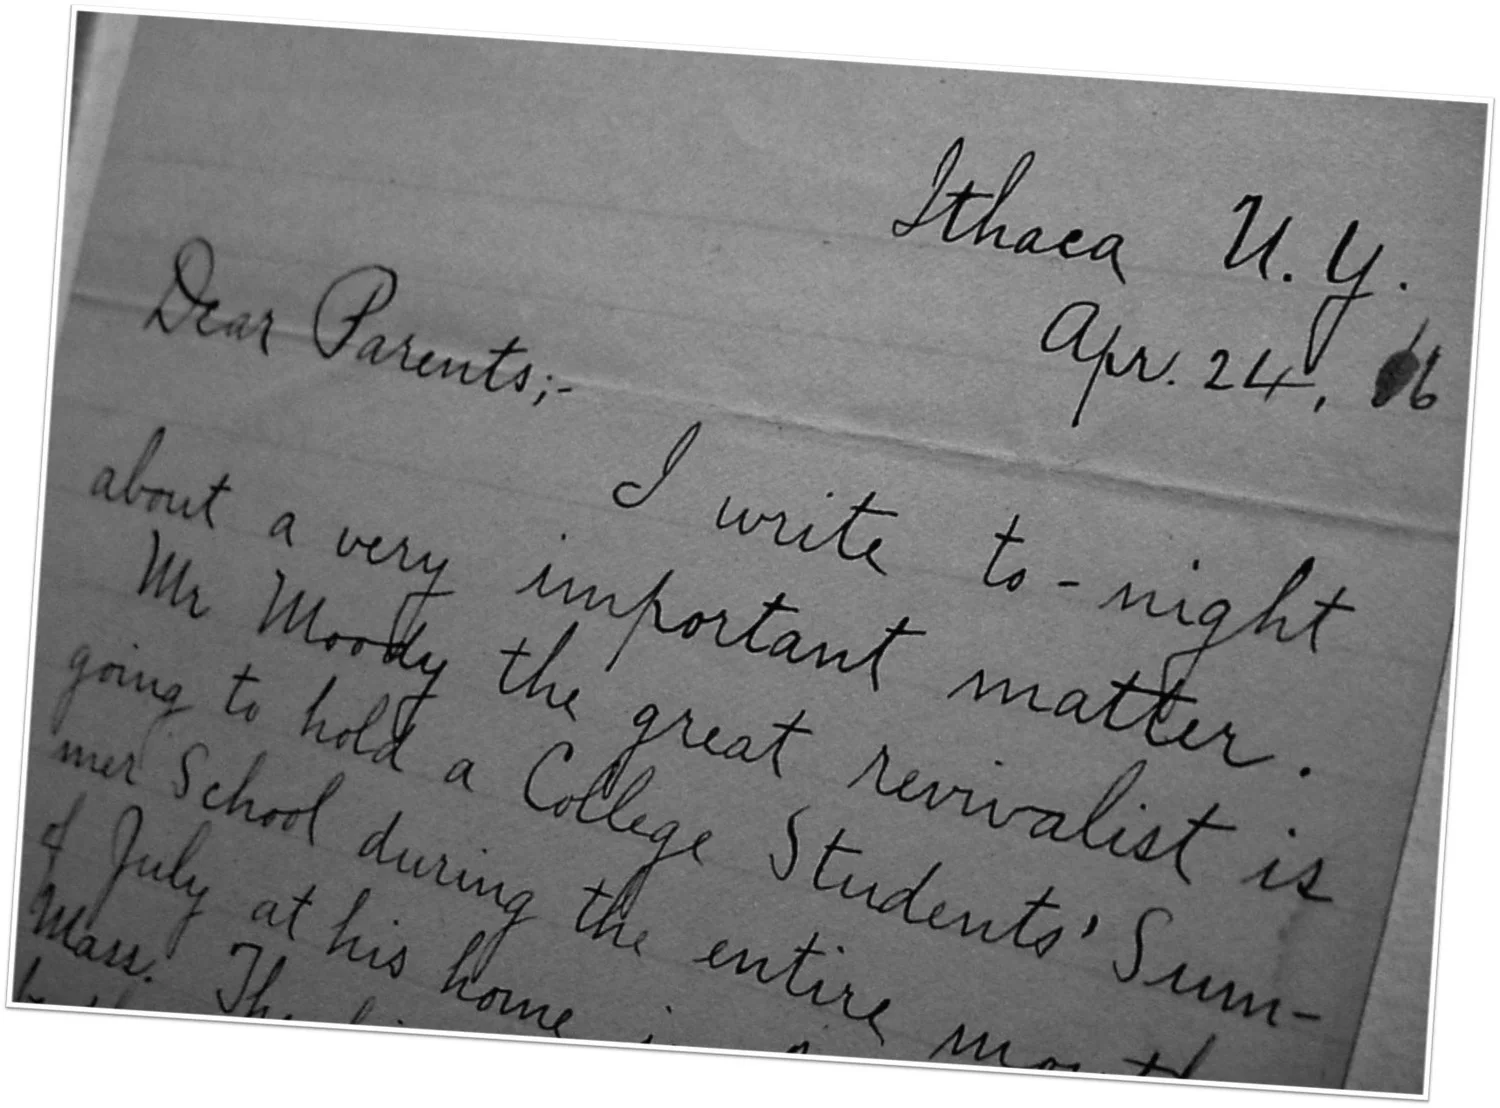 Ithaca N. Y.
Apr. 24,
Dear Parents;-
I write to-night
about a very important matter.
Mr Moody the great revivalist is
going to hold a College Students' Sum-
mer School during the entire month
of July at his home
Mass. The